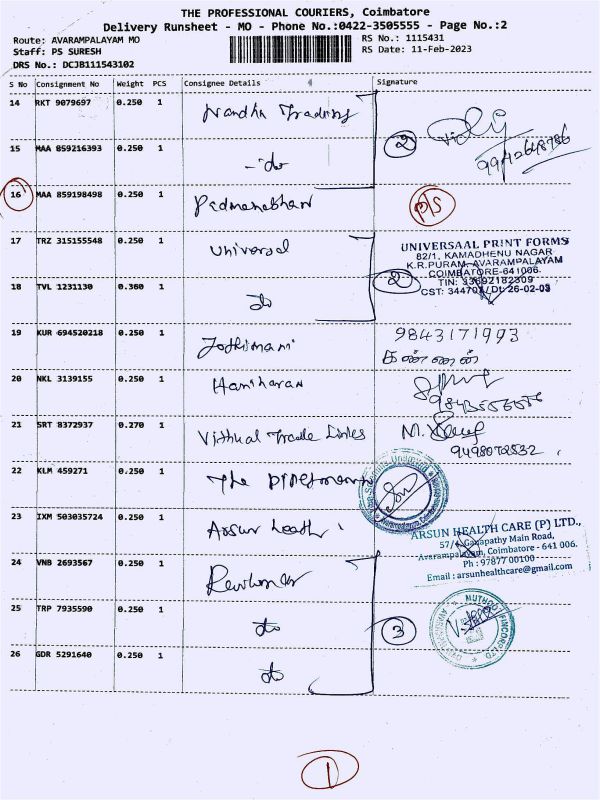 THE PROFESSIONAL COURIERS, Coimbatore
Delivery Runsheet - MO - Phone No.:0422-3505555 - Page No.:2
Route: AVARAMPALAYAM MO
RS No.: 1115431
Staff: PS SURESH
RS Date: 11-Feb-2023
DRS No.: DCJB111543102
S No Consignment No Weight PCS Consignee Details Signature
14 RKT 9079697 0.250 1 Nandha Trading
2
9942648786
15 MAA 859216393 0.250 1 - do
16 MAA 859198498 0.250 1 Padmanabhan P/S
17 TRZ 315155548 0.250 1 Universal
UNIVERSAAL PRINT FORMS
82/1, KAMADHENU NAGAR
K.R.PURAM, AVARAMPALAYAM
COIMBATORE-641006.
TIN: 33692182309
CST: 344704/Dt. 26-02-03
18 TVL 1231130 0.360 1 do 2
19 KUR 694520218 0.250 1 Jothimani 9843171993
கண்ணன்
20 NKL 3139155 0.250 1 Hariharan
21 SRT 8372937 0.270 1 Vithual Trade Links
22 KLM 459271 0.250 1 The
23 IXM 503035724 0.250 1 Arsun Health
ARSUN HEALTH CARE (P) LTD.,
57/ Ganapathy Main Road,
Avarampalayam, Coimbatore - 641 006.
Ph : 97877 00100
Email : arsunhealthcare@gmail.com
24 VNB 2693567 0.250 1
25 TRP 7935590 0.250 1 do 3
MUTHOOT FINCORP LTD
26 GDR 5291640 0.250 1 do
1